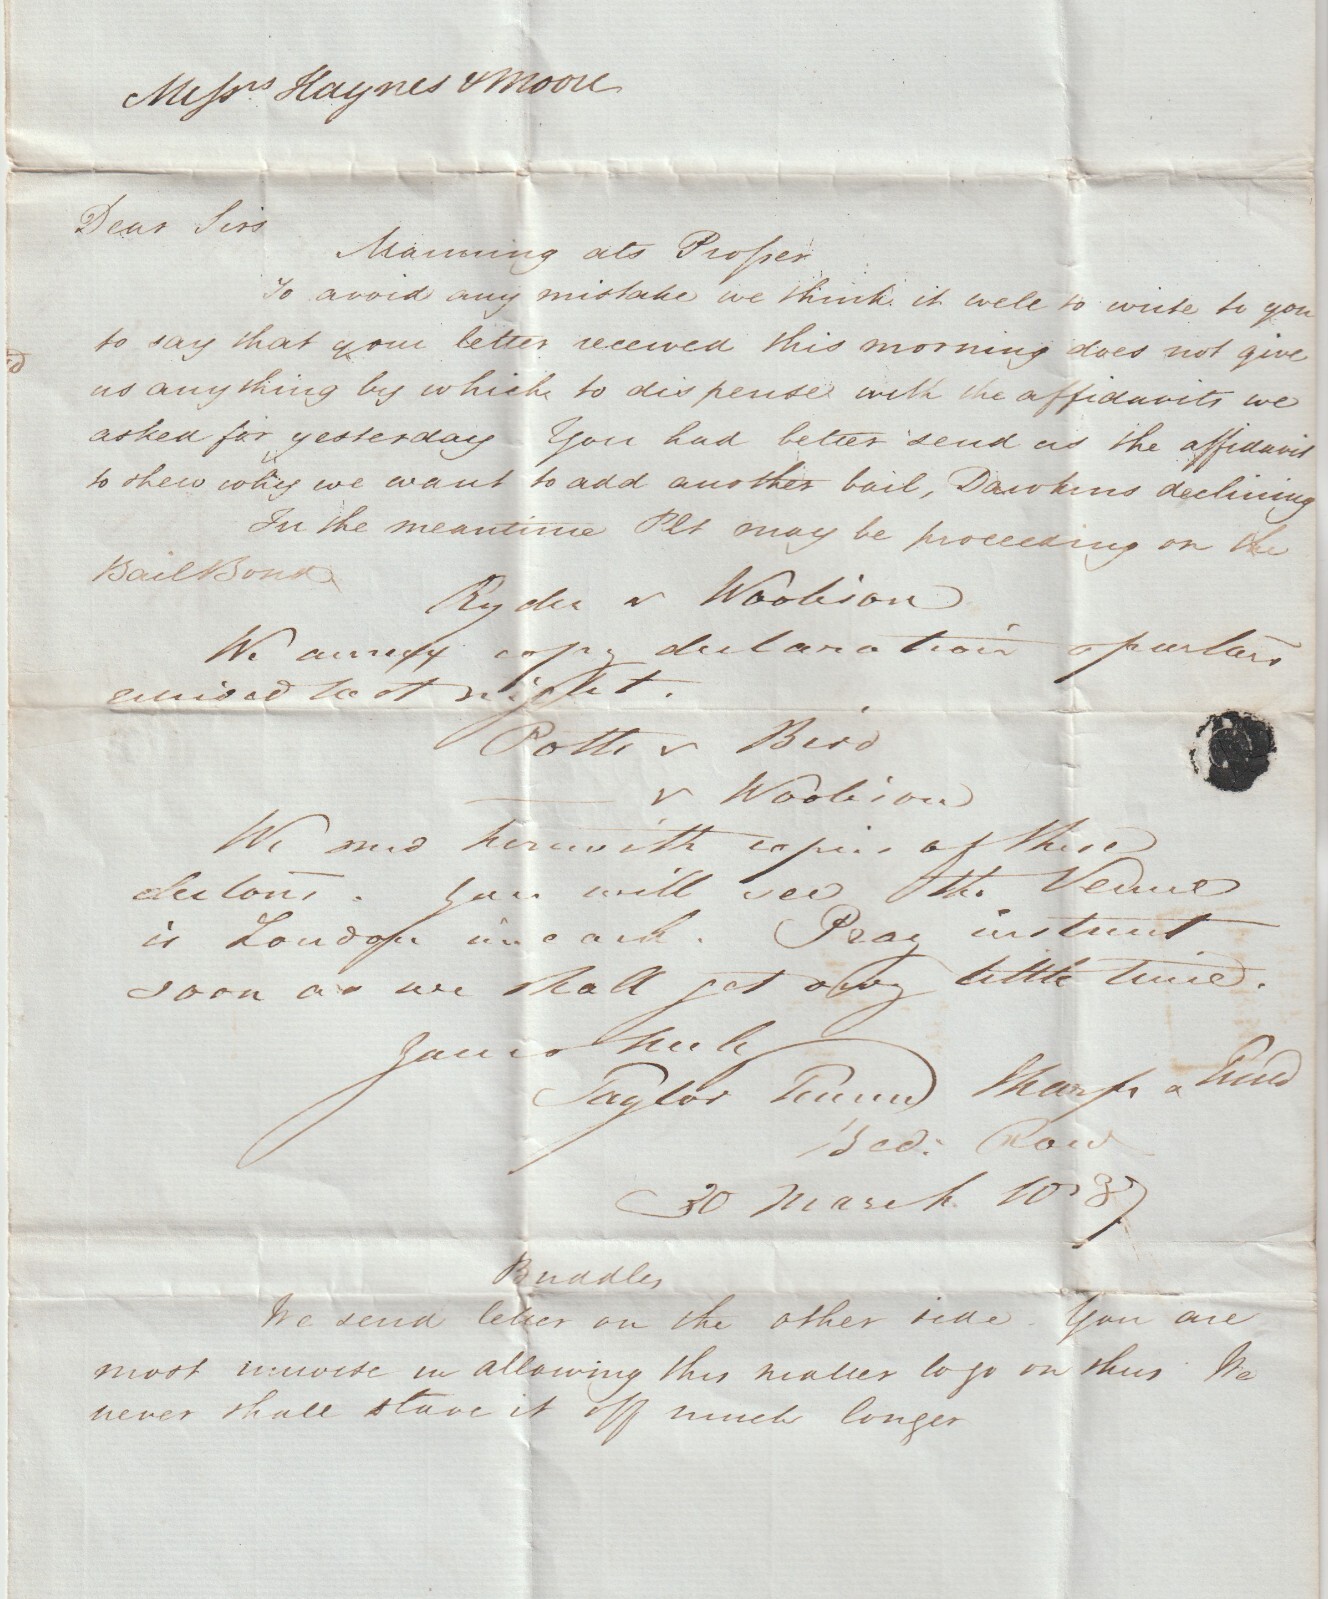 Messrs Haynes & Moore
Dear Sirs
Manning ats Prosser
To avoid any mistake we think it well to write to you
to say that your letter received this morning does not give
us anything by which to dispense with the affidavits we
asked for yesterday You had better send us the affidavit
to shew why we want to add another bail, Dawkins declining
In the meantime Plt may be proceeding on the
Bail Bond
Ryder v Woolison
We annex copy declaration & parlars
last night.
Potts v Bird
v Woolison
We send herewith copies of these
declons. You will see the Venue
is London in each. Pray instruct
soon as we shall get very little time.
Yours truly
Taylor Sharpe &
Bed: Row
30 March 1837
Buddles
We send letter on the other side. You are
most unwise in allowing this matter to go on thus We
never shall stave it off much longer